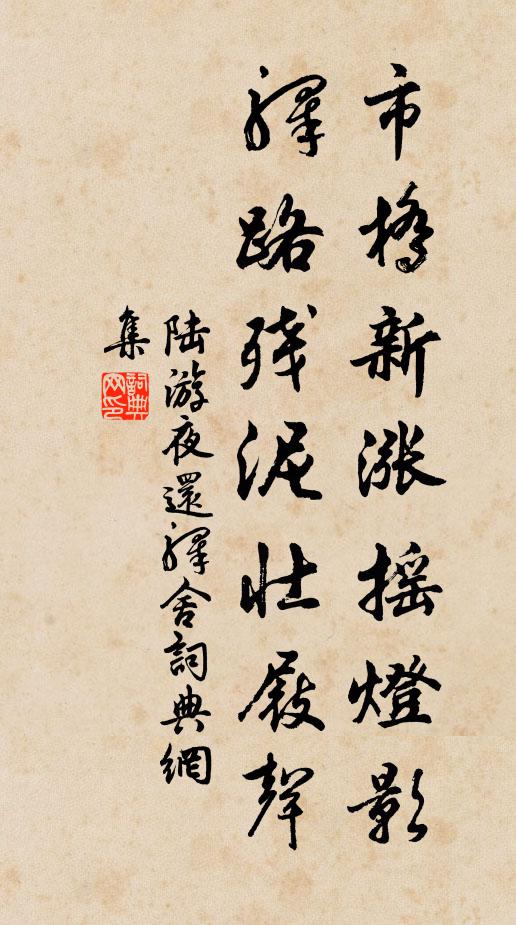 市橋新漲摇燈影
驛路残泥壯屐聲
陆游夜還驛舍詞典網
集
詞典
网印